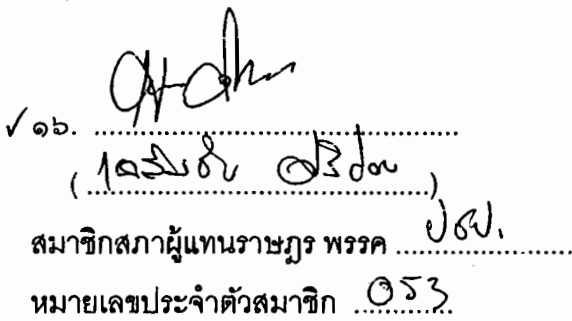 ✓ ๑๖. ........................................
(เฉลิมชัย ศรีอ่อน)
สมาชิกสภาผู้แทนราษฎร พรรค ปชป.
หมายเลขประจำตัวสมาชิก 053